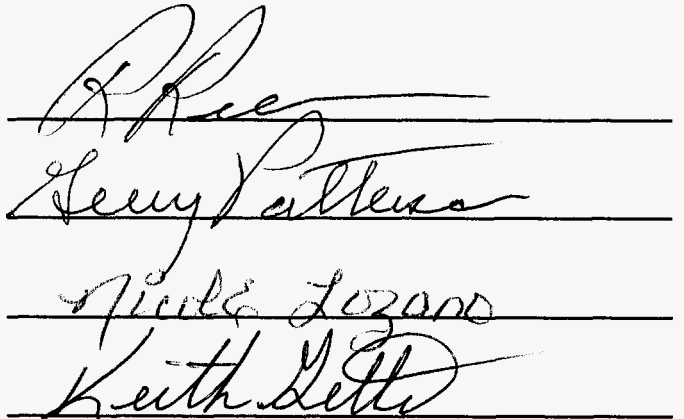 R R
Gerry Patterson
Nicole Lozano
Keith